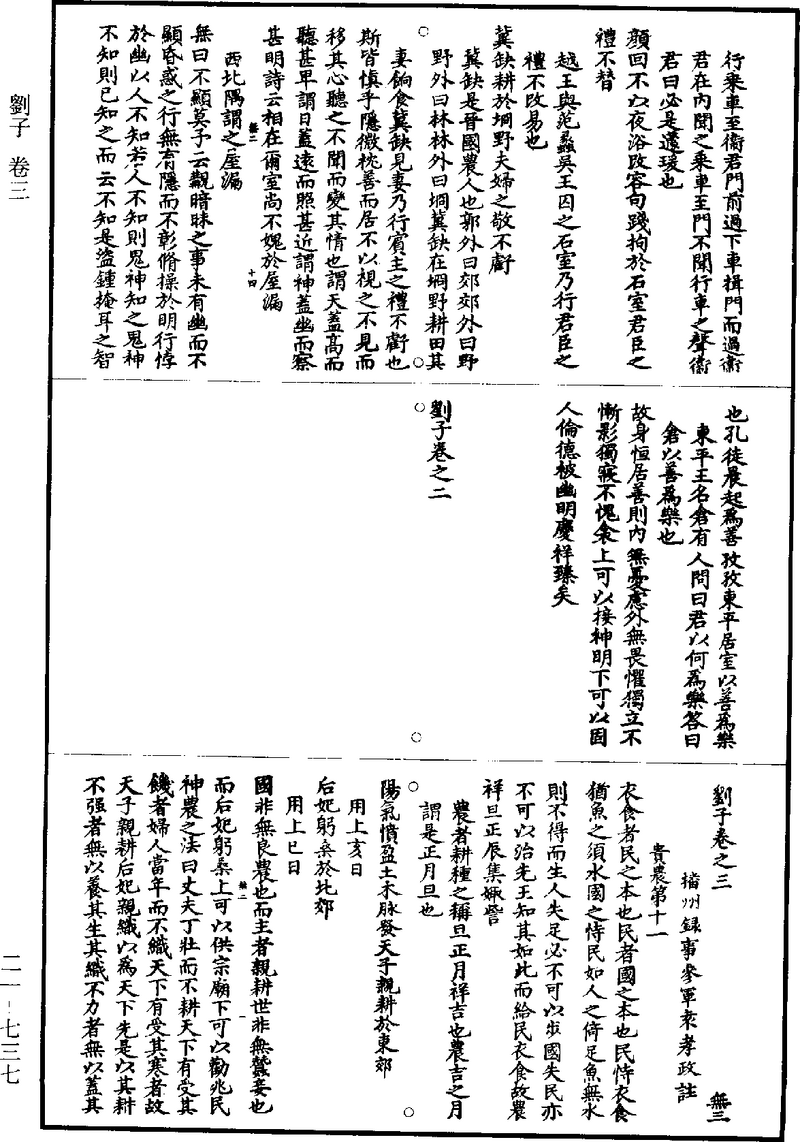 劉子 卷三
二一—七三七
行乘車至衞君門前過下車揖門而過衞
君在內聞之乘車至門不聞行車之聲衞
君曰必是蘧瑗也
顔回不以夜浴改容句踐拘於石室君臣之
禮不替
越王與范蠡吳王囚之石室乃行君臣之
禮不改易也
冀缺耕於坰野夫婦之敬不虧
冀缺是晉國農人也郭外曰郊郊外曰野
野外曰林林外曰坰冀缺在坰野耕田其
妻餉食冀缺見妻乃行賓主之禮不虧也
斯皆慎乎隱微枕善而居不以視之不見而
移其心聽之不聞而變其情也謂天蓋高而
聽甚卑謂日蓋遠而照甚近謂神蓋幽而察
甚明詩云相在爾室尚不媿於屋漏
無二 十四
西北隅謂之屋漏
無曰不顯莫予云觀暗昧之事未有幽而不
顯昏惑之行無有隱而不彰脩操於明行悖
於幽以人不知若人不知則鬼神知之鬼神
不知則已知之而云不知是盜鍾掩耳之智
也孔徒晨起爲善孜孜東平居室以善爲樂
東平王名倉有人問曰君以何爲樂答曰
倉以善爲樂也
故身恒居善則內無憂慮外無畏懼獨立不
慚影獨寢不愧衾上可以接神明下可以固
人倫德被幽明慶祥臻矣
劉子卷之二
劉子卷之三 無三
播州録事參軍袁孝政註
貴農第十一
衣食者民之本也民者國之本也民恃衣食
猶魚之須水國之恃民如人之倚足魚無水
則不得而生人失足必不可以步國失民亦
不可以治先王知其如此而給民衣食故農
祥旦正辰集娵訾
農者耕種之稱旦正月祥吉也農吉之月
謂是正月旦也
陽氣憤盈土木脉發天子親耕於東郊
用上亥日
后妃躬桑於北郊
用上巳日
國非無良農也而主者親耕世非無蠶妾也
而后妃躬桑上可以供宗廟下可以勸兆民
無三 一
神農之法曰丈夫丁壯而不耕天下有受其
饑者婦人當年而不織天下有受其寒者故
天子親耕后妃親織以爲天下先是以其耕
不强者無以養其生其織不力者無以蓋其